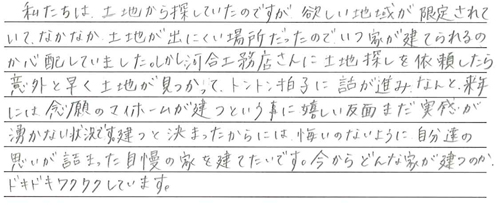 私たちは、土地から探していたのですが欲しい地域が限定されて
いて、なかなか土地が出にくい場所だったのでいつ家が建てられるの
か心配していました。しかし河合工務店さんに土地探しを依頼したら
意外と早く土地が見つかって、トントン拍子に話が進み、なんと、来年
には念願のマイホームが建つという事に嬉しい反面まだ実感が
湧かない状況です。建つと決まったからには悔いのないように自分達の
思いが詰まった自慢の家を建てたいです。今からどんな家が建つのか、
ドキドキワクワクしています。